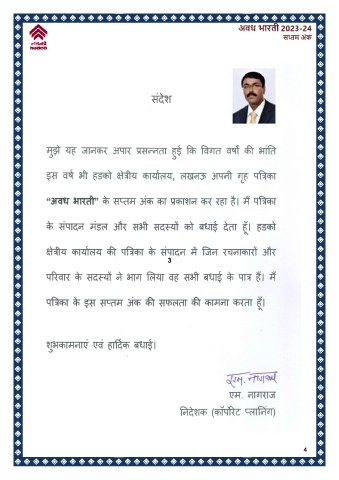 अवध भारती 2023-24
सप्तम अंक
हडको
hudco
संदेश
मुझे यह जानकर अपार प्रसन्नता हुई कि विगत वर्षो की भांति
इस वर्ष भी हडको क्षेत्रीय कार्यालय, लखनऊ अपनी गृह पत्रिका
“अवध भारती” के सप्तम अंक का प्रकाशन कर रहा है। मैं पत्रिका
के संपादन मंडल और सभी सदस्यों को बधाई देता हूँ। हडको
क्षेत्रीय कार्यालय की पत्रिका के संपादन में जिन रचनाकारों और
3
परिवार के सदस्यों ने भाग लिया वह सभी बधाई के पात्र हैं। मैं
पत्रिका के इस सप्तम अंक की सफलता की कामना करता हूँ।
शुभकामनाएं एवं हार्दिक बधाई।
एम. नागराज
एम. नागराज
निदेशक (कॉर्पोरेट प्लानिंग)
4